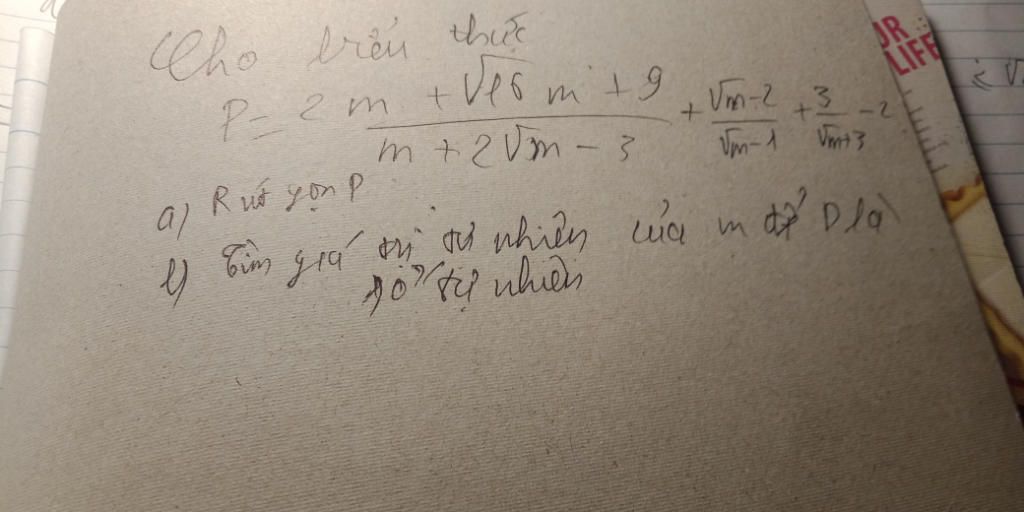 Cho biểu thức
P = 2m + √16m + 9 / m + 2√m - 3 + √m - 2 / √m - 1 + 3 / √m + 3 - 2
a) Rút gọn P
b) Tìm giá trị tự nhiên của m để P là
số tự nhiên
OR
LIFE